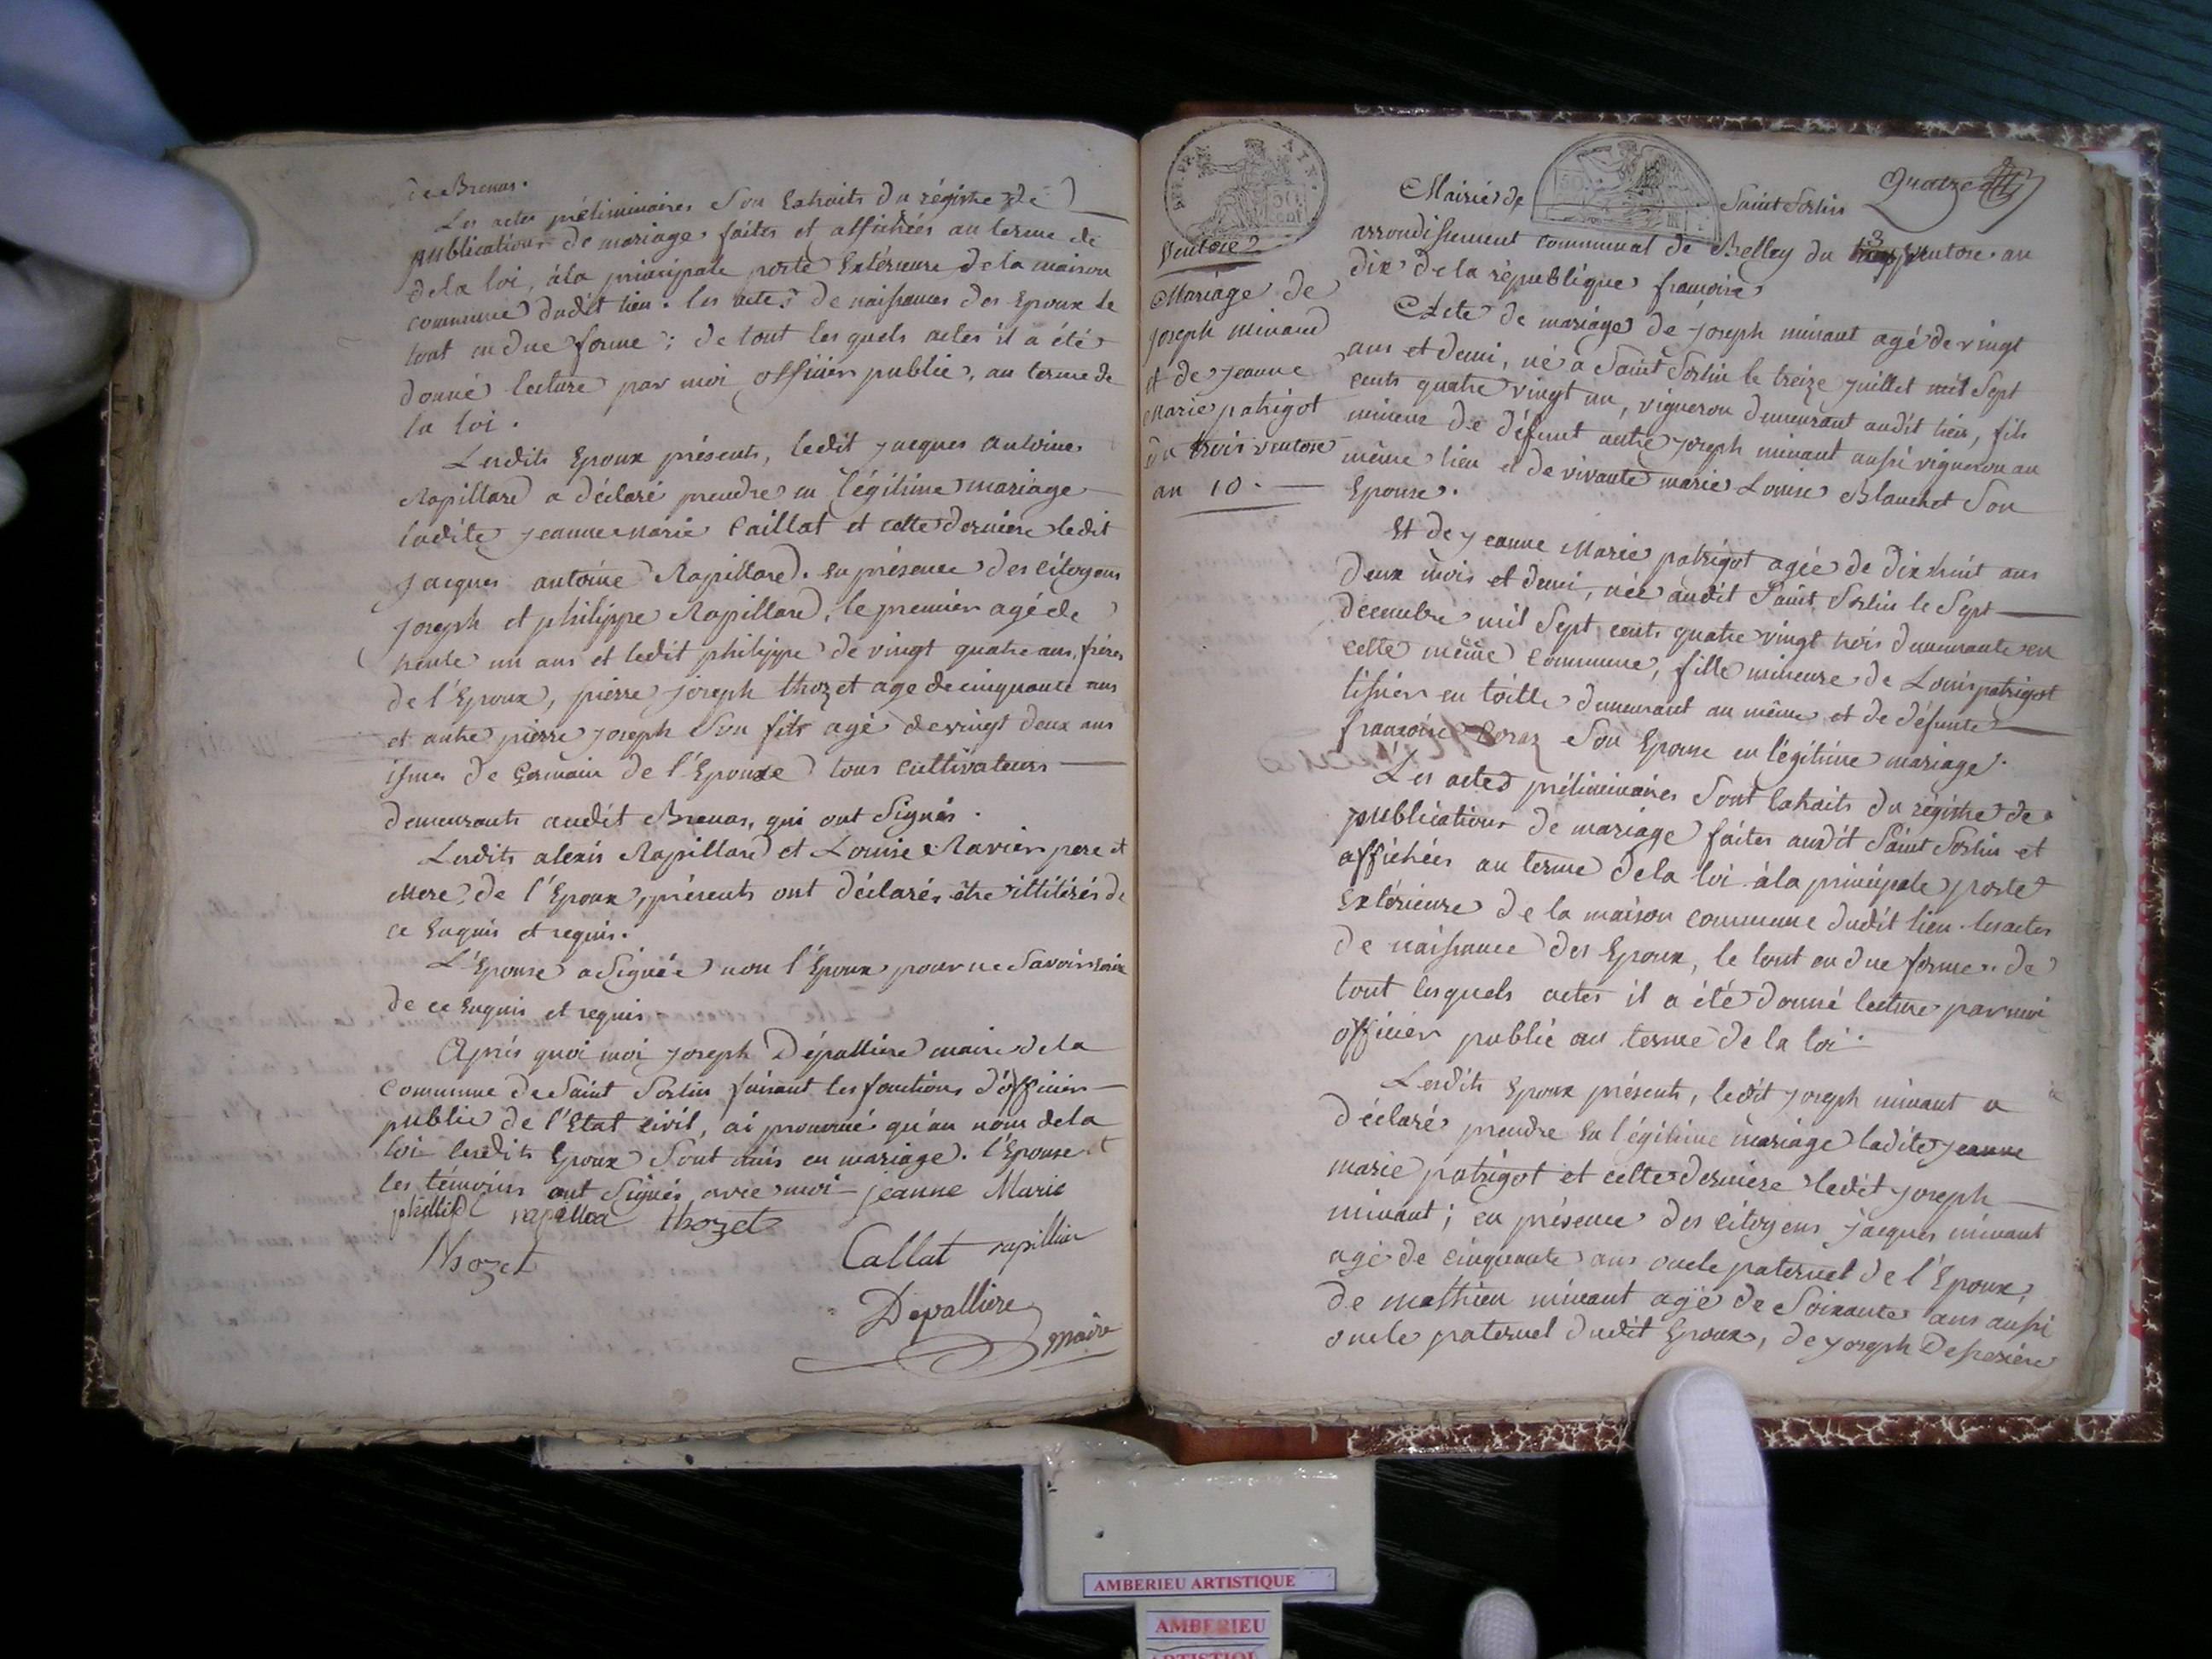 de Brenas.
Les actes préliminaires Son Extraits du régistre de
publications de mariage faites et affichées au terme de
de la loi, à la principale porte Extérieure de la maison
commune dudit lieu. les actes de naissances des Epoux le
tout en due forme ; de tout les quels actes il a été
donné lecture par moi officier public, au terme de
la loi.
Lesdits Epoux présents, ledit Jacques antoine
Rapillard a déclaré prendre en légitime mariage
ladite Jeanne Marie Caillat et cette dernière ledit
Jacques antoine Rapillard. en présence des citoyens
Joseph et philippe Rapillard, le premier agé de
trente un ans et ledit philippe de vingt quatre ans, frères
de l'Epoux, pierre joseph thozet agé de cinquante ans
et autre pierre joseph Son fils agé de vingt deux ans
de Germain de l'Epouse tous cultivateurs
demeurants audit Brenas, qui ont Signés.
Lesdits alexis Rapillard et Louise Ravier pere et
Mere de l'Epoux, présents ont déclarés être illitérés de
ce Enquis et requis.
L'Epouse a Signée non l'Epoux pour ne Savoir
de ce Enquis et requis.
Après quoi moi Joseph Dépallière maire de la
commune de Saint Sorlin faisant les fonctions d'officier
public de l'Etat civil, ai prononcé qu'au nom de la
loi lesdits Epoux Sont unis en mariage. l'Epouse et
les témoins ont Signés avec moi Jeanne Marie
phillipe rapillar thozet
Thozet
Callat rapilliar
Depalliere
maire
DEP. DE L'AIN.
50 cent
Ventose
Mariage de
joseph minand
et de jeanne
Marie patrigot
du trois ventose
an 10.
Mairie de Saint Sorlin
quatre
arrondissement communal de Belley du 3 ventose an
dix de la république française
Acte de mariage de joseph minant agé de vingt
ans et demi, né à Saint Sorlin le treize juillet mil Sept
cents quatre vingt un, vigneron demeurant audit lieu, fils
mineur de défunt autre joseph minant aussi vigneron au
même lieu et de vivante marie Louise Blanchet Son
Epouse.
Et de jeanne Marie patrigot agée de dix huit ans
deux mois et demi, née audit Saint Sorlin le Sept
decembre mil Sept cents quatre vingt trois demeurante en
cette même commune, fille mineure de Louis patrigot
tissier en toille demeurant au même et de défunte
françoise Son Epouse en légitime mariage.
Les actes préliminaires Sont Extraits du régistre de
publications de mariage faites audit Saint Sorlin et
affichées au terme de la loi à la principale porte
Extérieure de la maison commune dudit lieu. les actes
de naissance des Epoux, le tout en due forme. de
tout lesquels actes il a été donné lecture par moi
officier public au terme de la loi.
Lesdits Epoux présents, ledit joseph minant a
déclaré prendre en légitime mariage ladite jeanne
marie patrigot et cette dernière ledit joseph
minant ; en présence des citoyens jacques minant
agé de cinquante ans oncle paternel de l'Epoux,
de mathieu minant agé de Soixante ans aussi
oncle paternel dudit Epoux, de joseph
AMBERIEU ARTISTIQUE
AMBERIEU
ARTISTIQUE